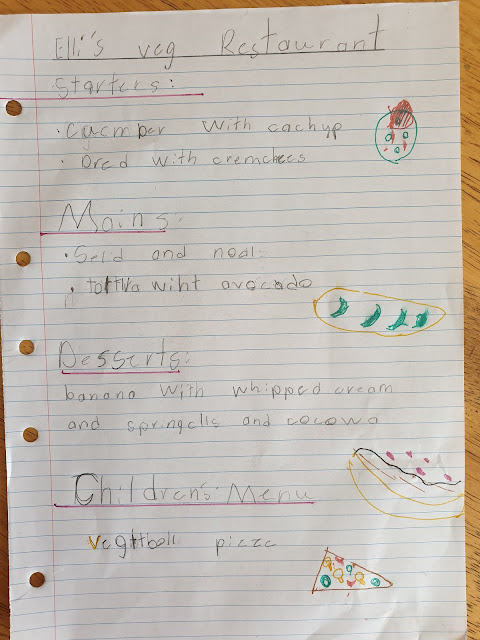 Elli's veg Restaurant
Starters:
· cycmber with cachyp
· Dred with cremchees
Mains:
· Seld and nodl
· tortlla wiht avocado
Desserts:
banana with whipped cream
and springells and cocowa
Children's Menu
Vegttboll pizza